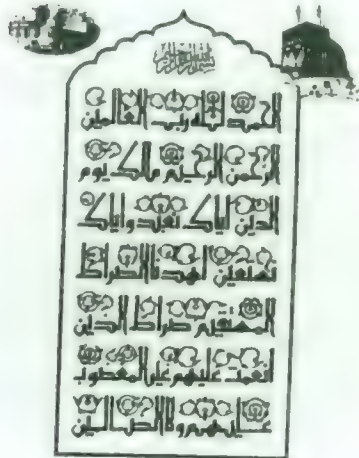 بسم الله الرحمن الرحيم
الحمد لله رب العالمين
الرحمن الرحيم مالك يوم
الدين إياك نعبد وإياك
نستعين اهدنا الصراط
المستقيم صراط الذين
أنعمت عليهم غير المغضوب
عليهم ولا الضالين